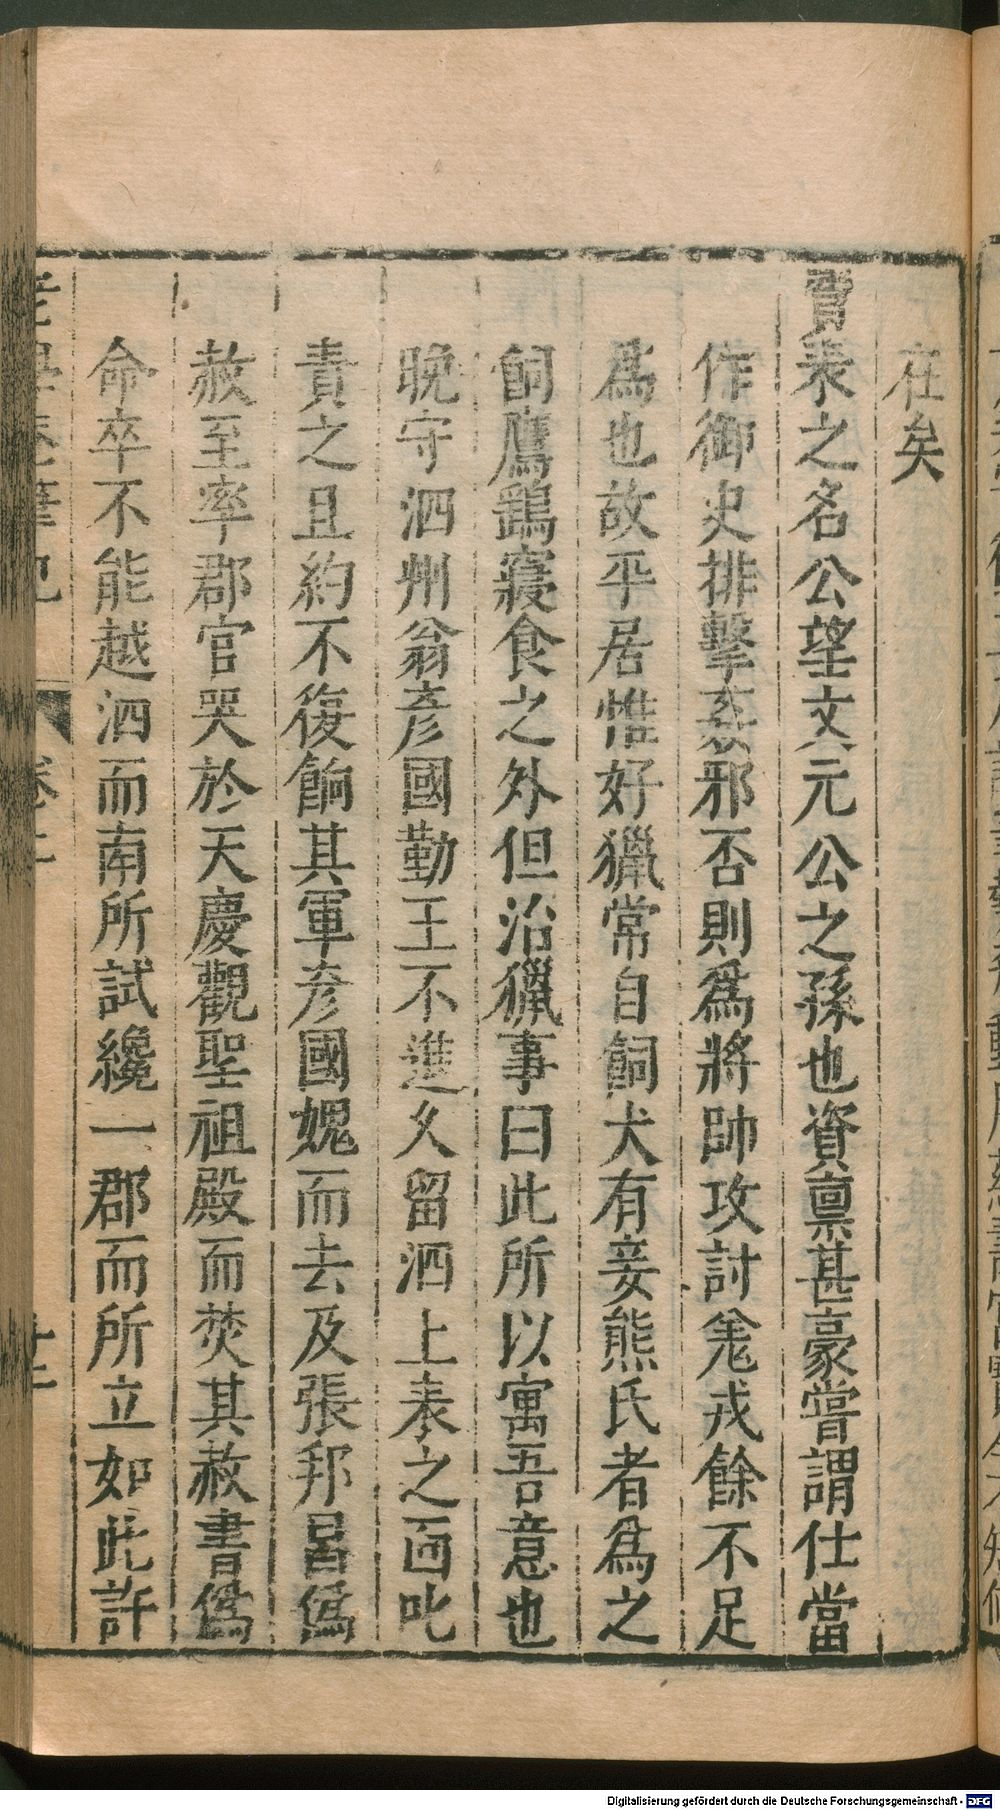 在矣
賈表之名公望文元公之孫也資稟甚豪嘗謂仕當
作御史排擊姦邪否則爲將帥攻討羌戎餘不足
爲也故平居惟好獵常自飼犬有妾熊氏者爲之
飼鷹鷂寢食之外但治獵事曰此所以寓吾意也
晚守泗州翁彥國勤王不進久留泗上表之面叱
責之且約不復餉其軍彥國媿而去及張邦昌僞
赦至率郡官哭於天慶觀聖祖殿而焚其赦書僞
命卒不能越泗而南所試纔一郡而所立如此許
老學菴筆記 卷二 十二
Digitalisierung gefördert durch die Deutsche Forschungsgemeinschaft - DFG